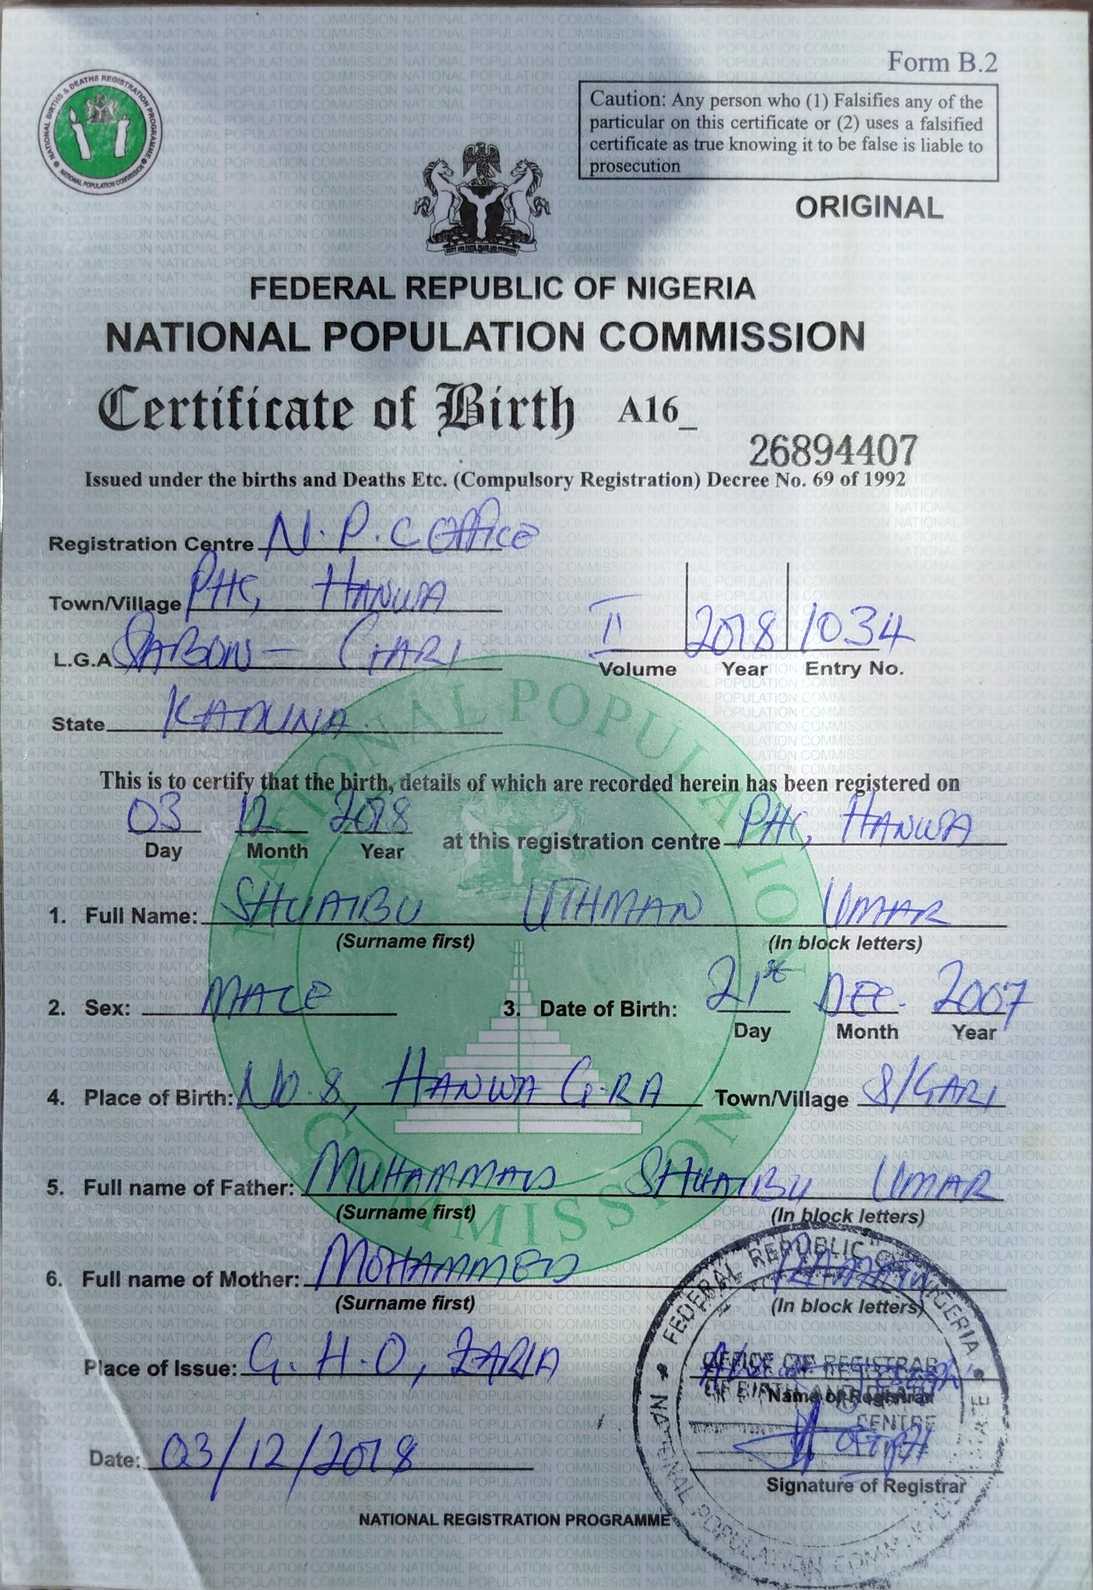 Form B.2
NATIONAL BIRTHS & DEATHS REGISTRATION PROGRAMME
NATIONAL POPULATION COMMISSION
Caution: Any person who (1) Falsifies any of the
particular on this certificate or (2) uses a falsified
certificate as true knowing it to be false is liable to
prosecution
ORIGINAL
FEDERAL REPUBLIC OF NIGERIA
NATIONAL POPULATION COMMISSION
Certificate of Birth A16_
26894407
Issued under the births and Deaths Etc. (Compulsory Registration) Decree No. 69 of 1992
Registration Centre N.P.C OFFICE
Town/Village PHC, HANWA
L.G.A SABON-GARI
II 2018 1034
Volume Year Entry No.
State KADUNA
This is to certify that the birth, details of which are recorded herein has been registered on
03 12 2018 at this registration centre PHC, HANWA
Day Month Year
1. Full Name: SHUAIBU UTHMAN UMAR
(Surname first) (In block letters)
2. Sex: MALE 3. Date of Birth: 21st DEC. 2007
Day Month Year
4. Place of Birth: NO.8, HANWA G.R.A Town/Village S/GARI
5. Full name of Father: MUHAMMAD SHUAIBU UMAR
(Surname first) (In block letters)
6. Full name of Mother: MOHAMMED
(Surname first) (In block letters)
Place of Issue: G.H.O, ZARIA
OFFICE OF REGISTRAR
Name of Registrar
CENTRE
Date: 03/12/2018
Signature of Registrar
NATIONAL REGISTRATION PROGRAMME
FEDERAL REPUBLIC OF NIGERIA
NATIONAL POPULATION COMMISSION